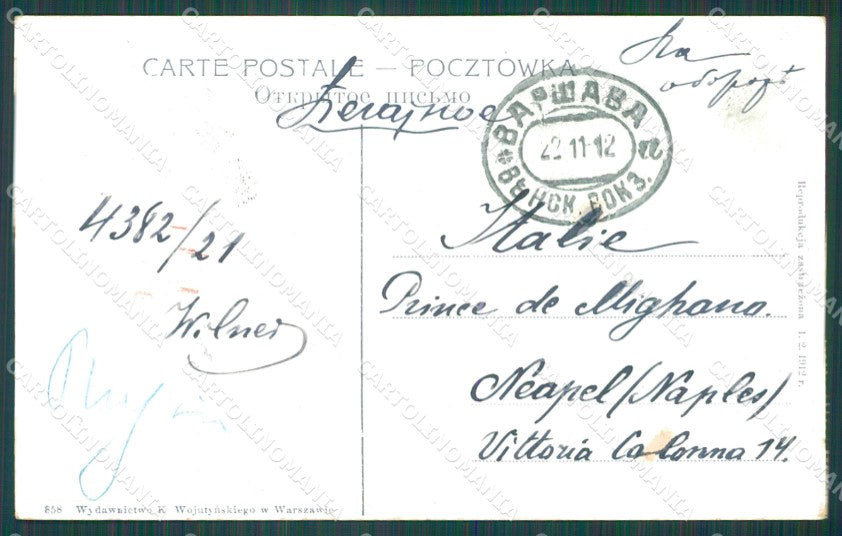 CARTE POSTALE — POCZTÓWKA
Открытое письмо
ВАРШАВА
22 11 12
ВѢНСК. ВОКЗ.
Italie
Prince de Mighano.
Neapel (Naples)
Vittoria Colonna 14.
4382/21
Wilner
Reprodukcja zastrzeżona 1. 2. 1912 r.
858 Wydawnictwo K. Wojutyńskiego w Warszawie
CARTOLINOMANIA